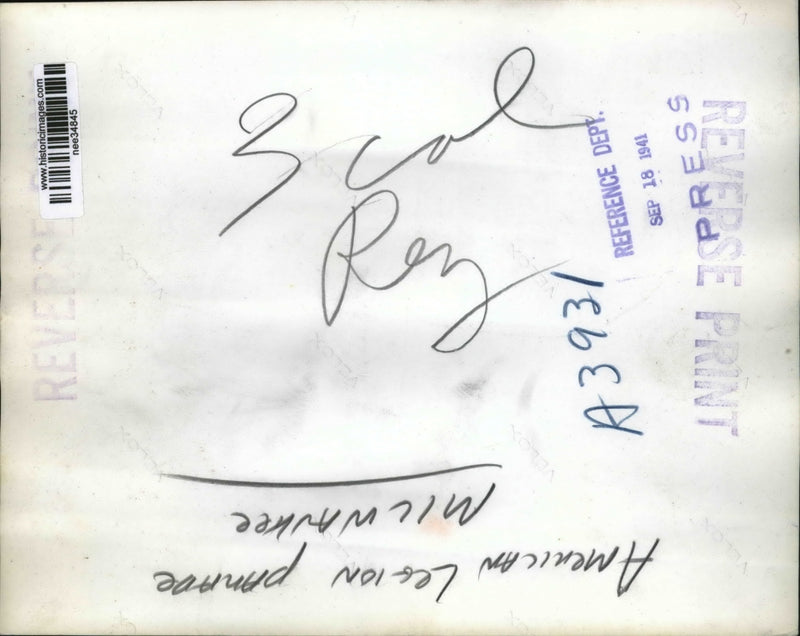 www.historicimages.com
nee34845
3 col
Reg
REFERENCE DEPT.
SEP 18 1941
PRESS
REVERSE PRINT
A3931
REVERSE
AMERICAN LEGION PARADE
MILWAUKEE
VELOX